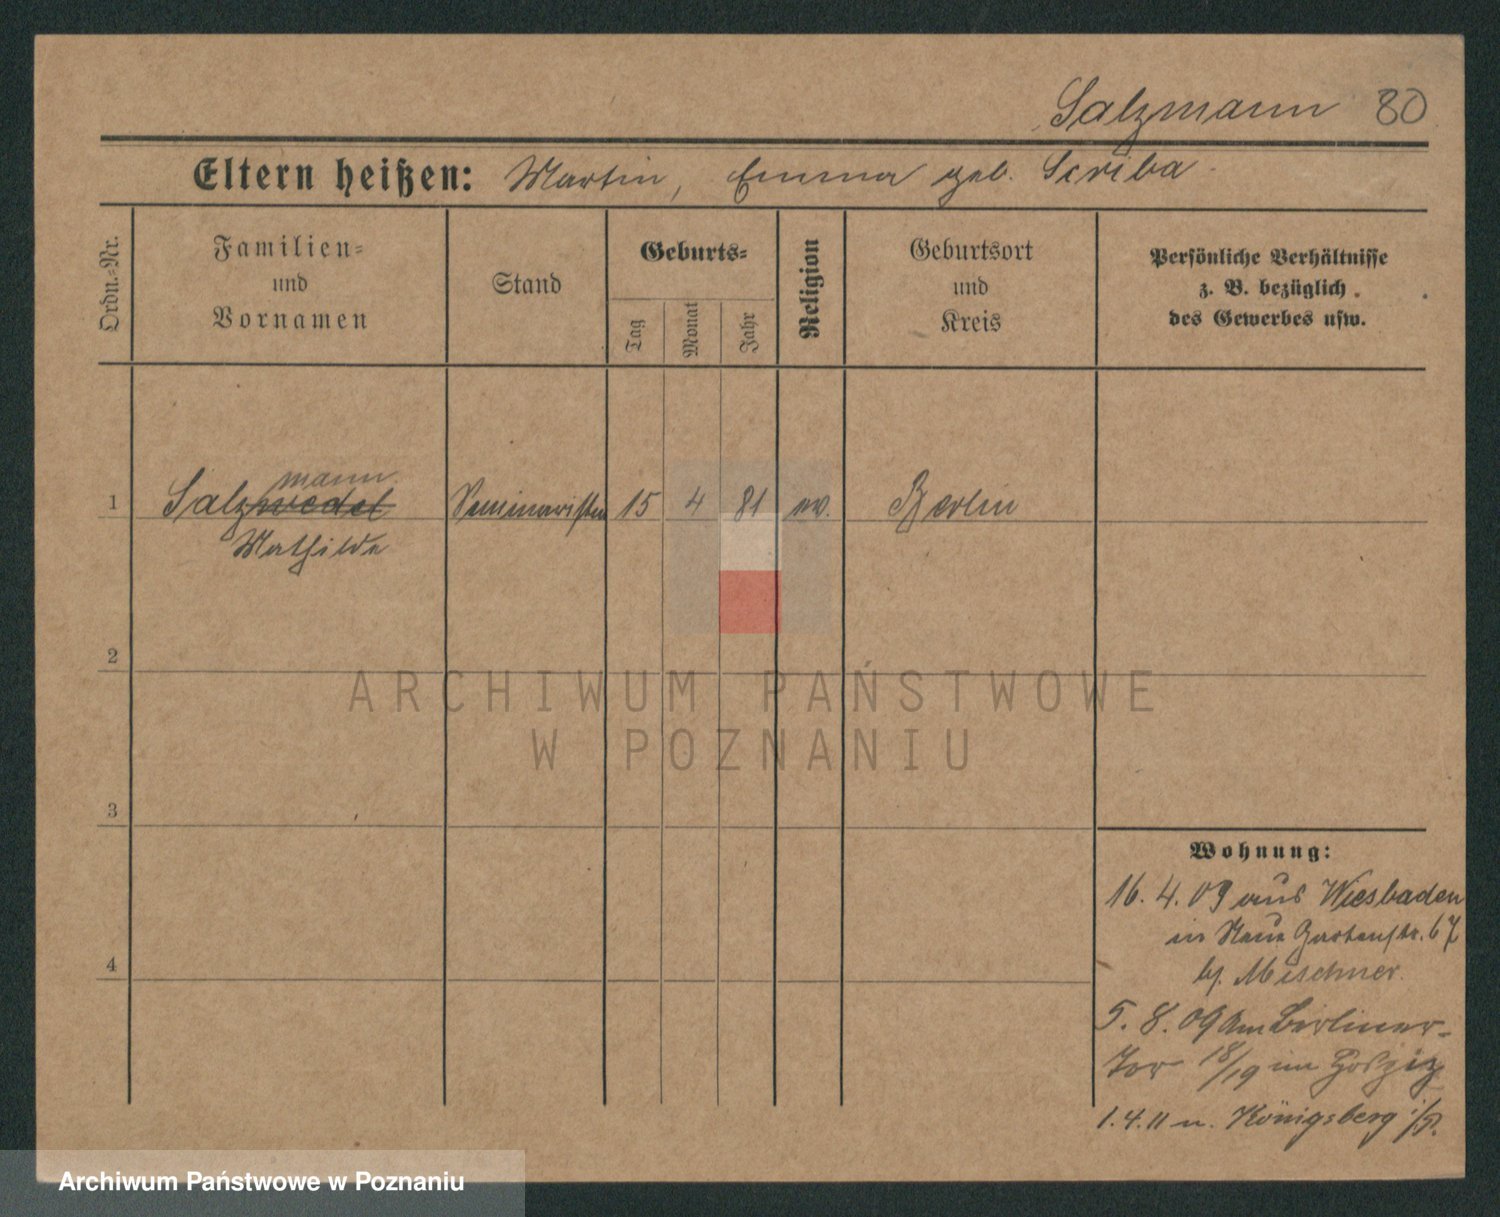 Salzmann 80
Eltern heißen: Martin, Emma geb. Scriba
Ordn.-Nr.
Familien-
und
Vornamen
Stand
Geburts-
Tag
Monat
Jahr
Religion
Geburtsort
und
Kreis
Persönliche Verhältnisse
z. B. bezüglich
des Gewerbes usw.
mann
1 Salzwedel Seminaristin 15 4 81 ev. Berlin
Mathilde
2
3
4
Wohnung:
16. 4. 09 aus Wiesbaden
in Neue Gartenstr. 67
bj. Meschner
5. 8. 09 Am Berliner-
Tor 18/19 im Hospiz
1. 4. 11 n. Königsberg i/P.
ARCHIWUM PAŃSTWOWE
W POZNANIU
Archiwum Państwowe w Poznaniu